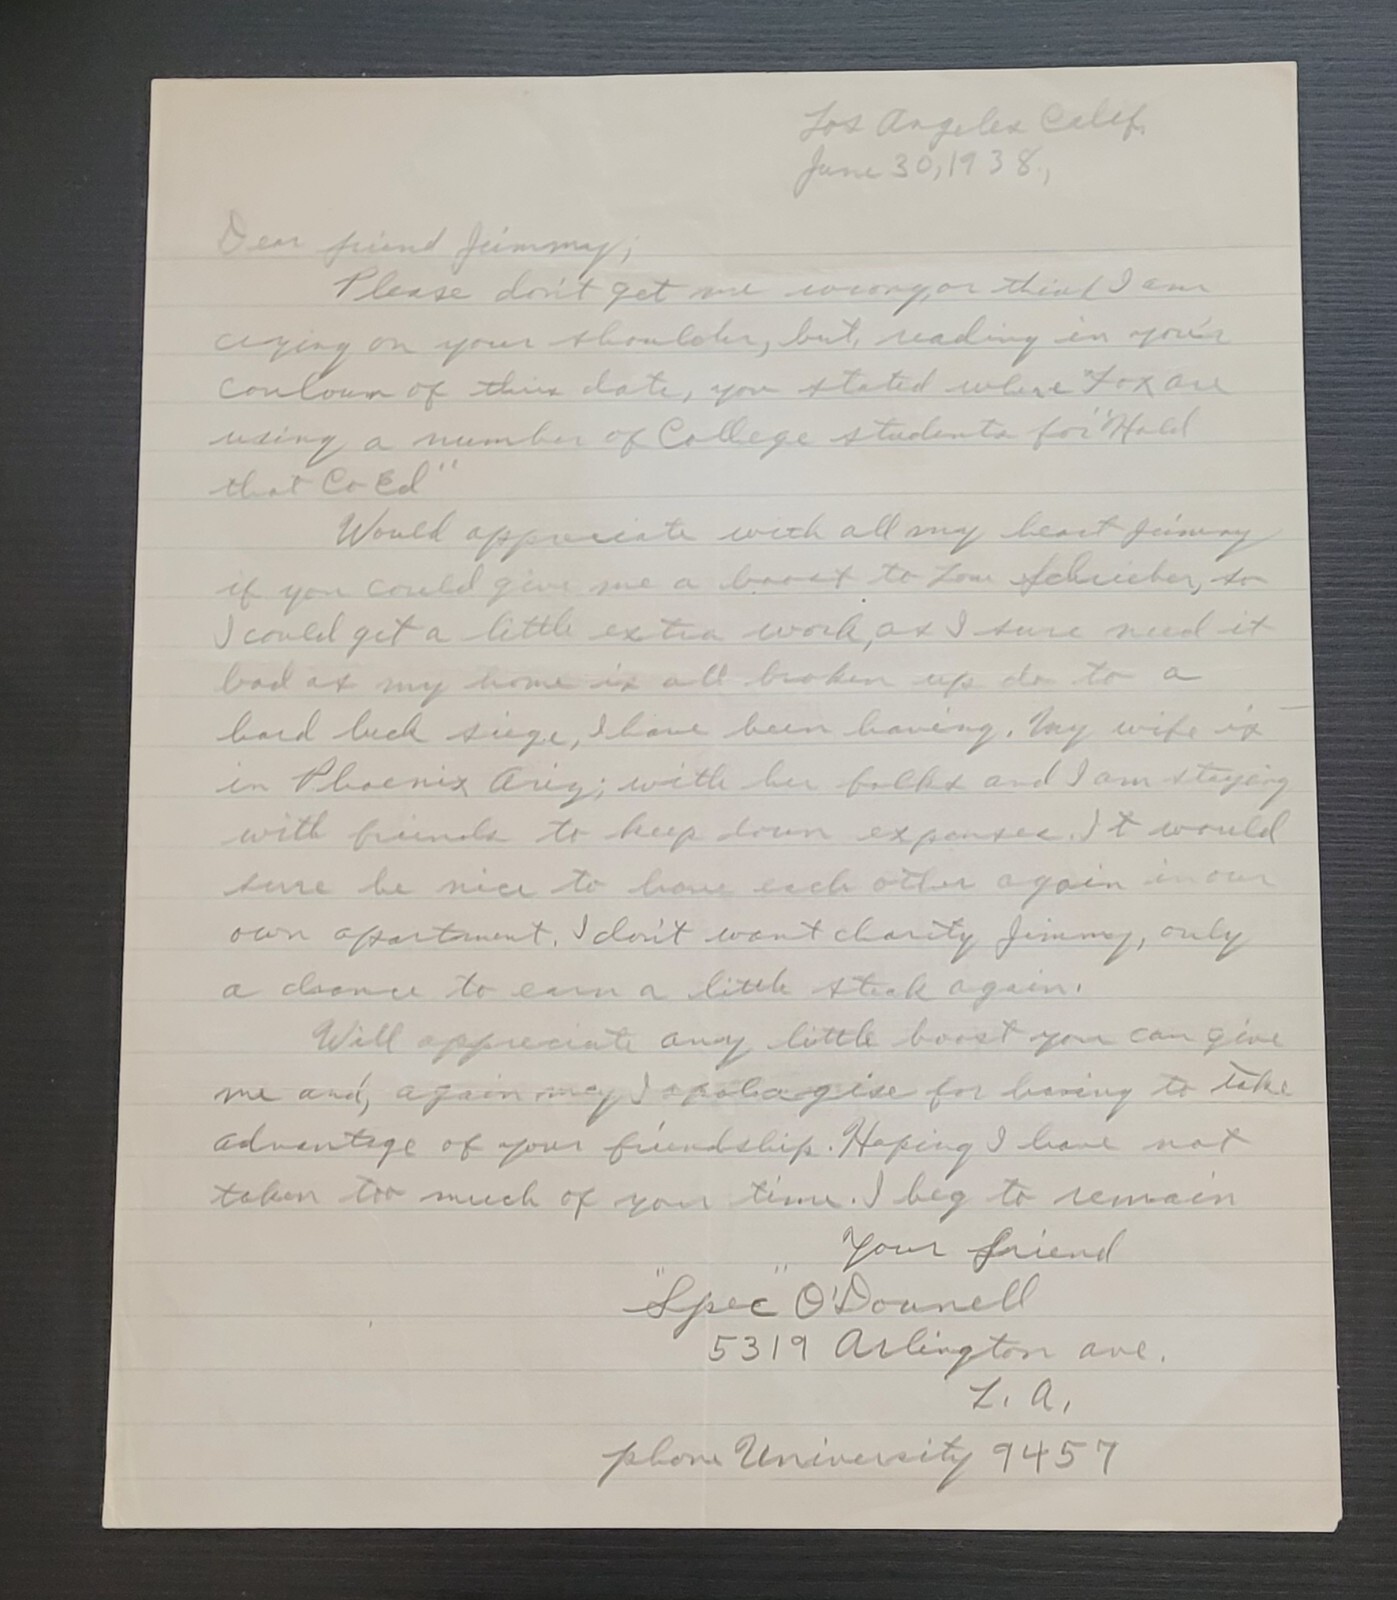 Los Angeles Calif.
June 30, 1938.,
Dear friend Jimmy;
Please don't get me wrong, or think I am
crying on your shoulder, but, reading in your
couloum of this date, you stated where Fox are
using a number of College students for "Hold
that Co-Ed"
Would appreciate with all my heart Jimmy
if you could give me a boost to Lou Schrieber, so
I could get a little extra work, as I sure need it
bad as my home is all broken up do to a
hard luck siege, I have been having. My wife is
in Phoenix Ariz; with her folks and I am staying
with friends to keep down expenses. It would
sure be nice to have each other again in our
own apartment. I don't want charity Jimmy, only
a chance to earn a little steak again.
Will appreciate any little boost you can give
me and, again may I apologise for having to take
advantage of your friendship. Hoping I have not
taken too much of your time. I beg to remain
Your friend
"Spec" O'Donnell
5319 Arlington ave.
L. A.
phone University 9457